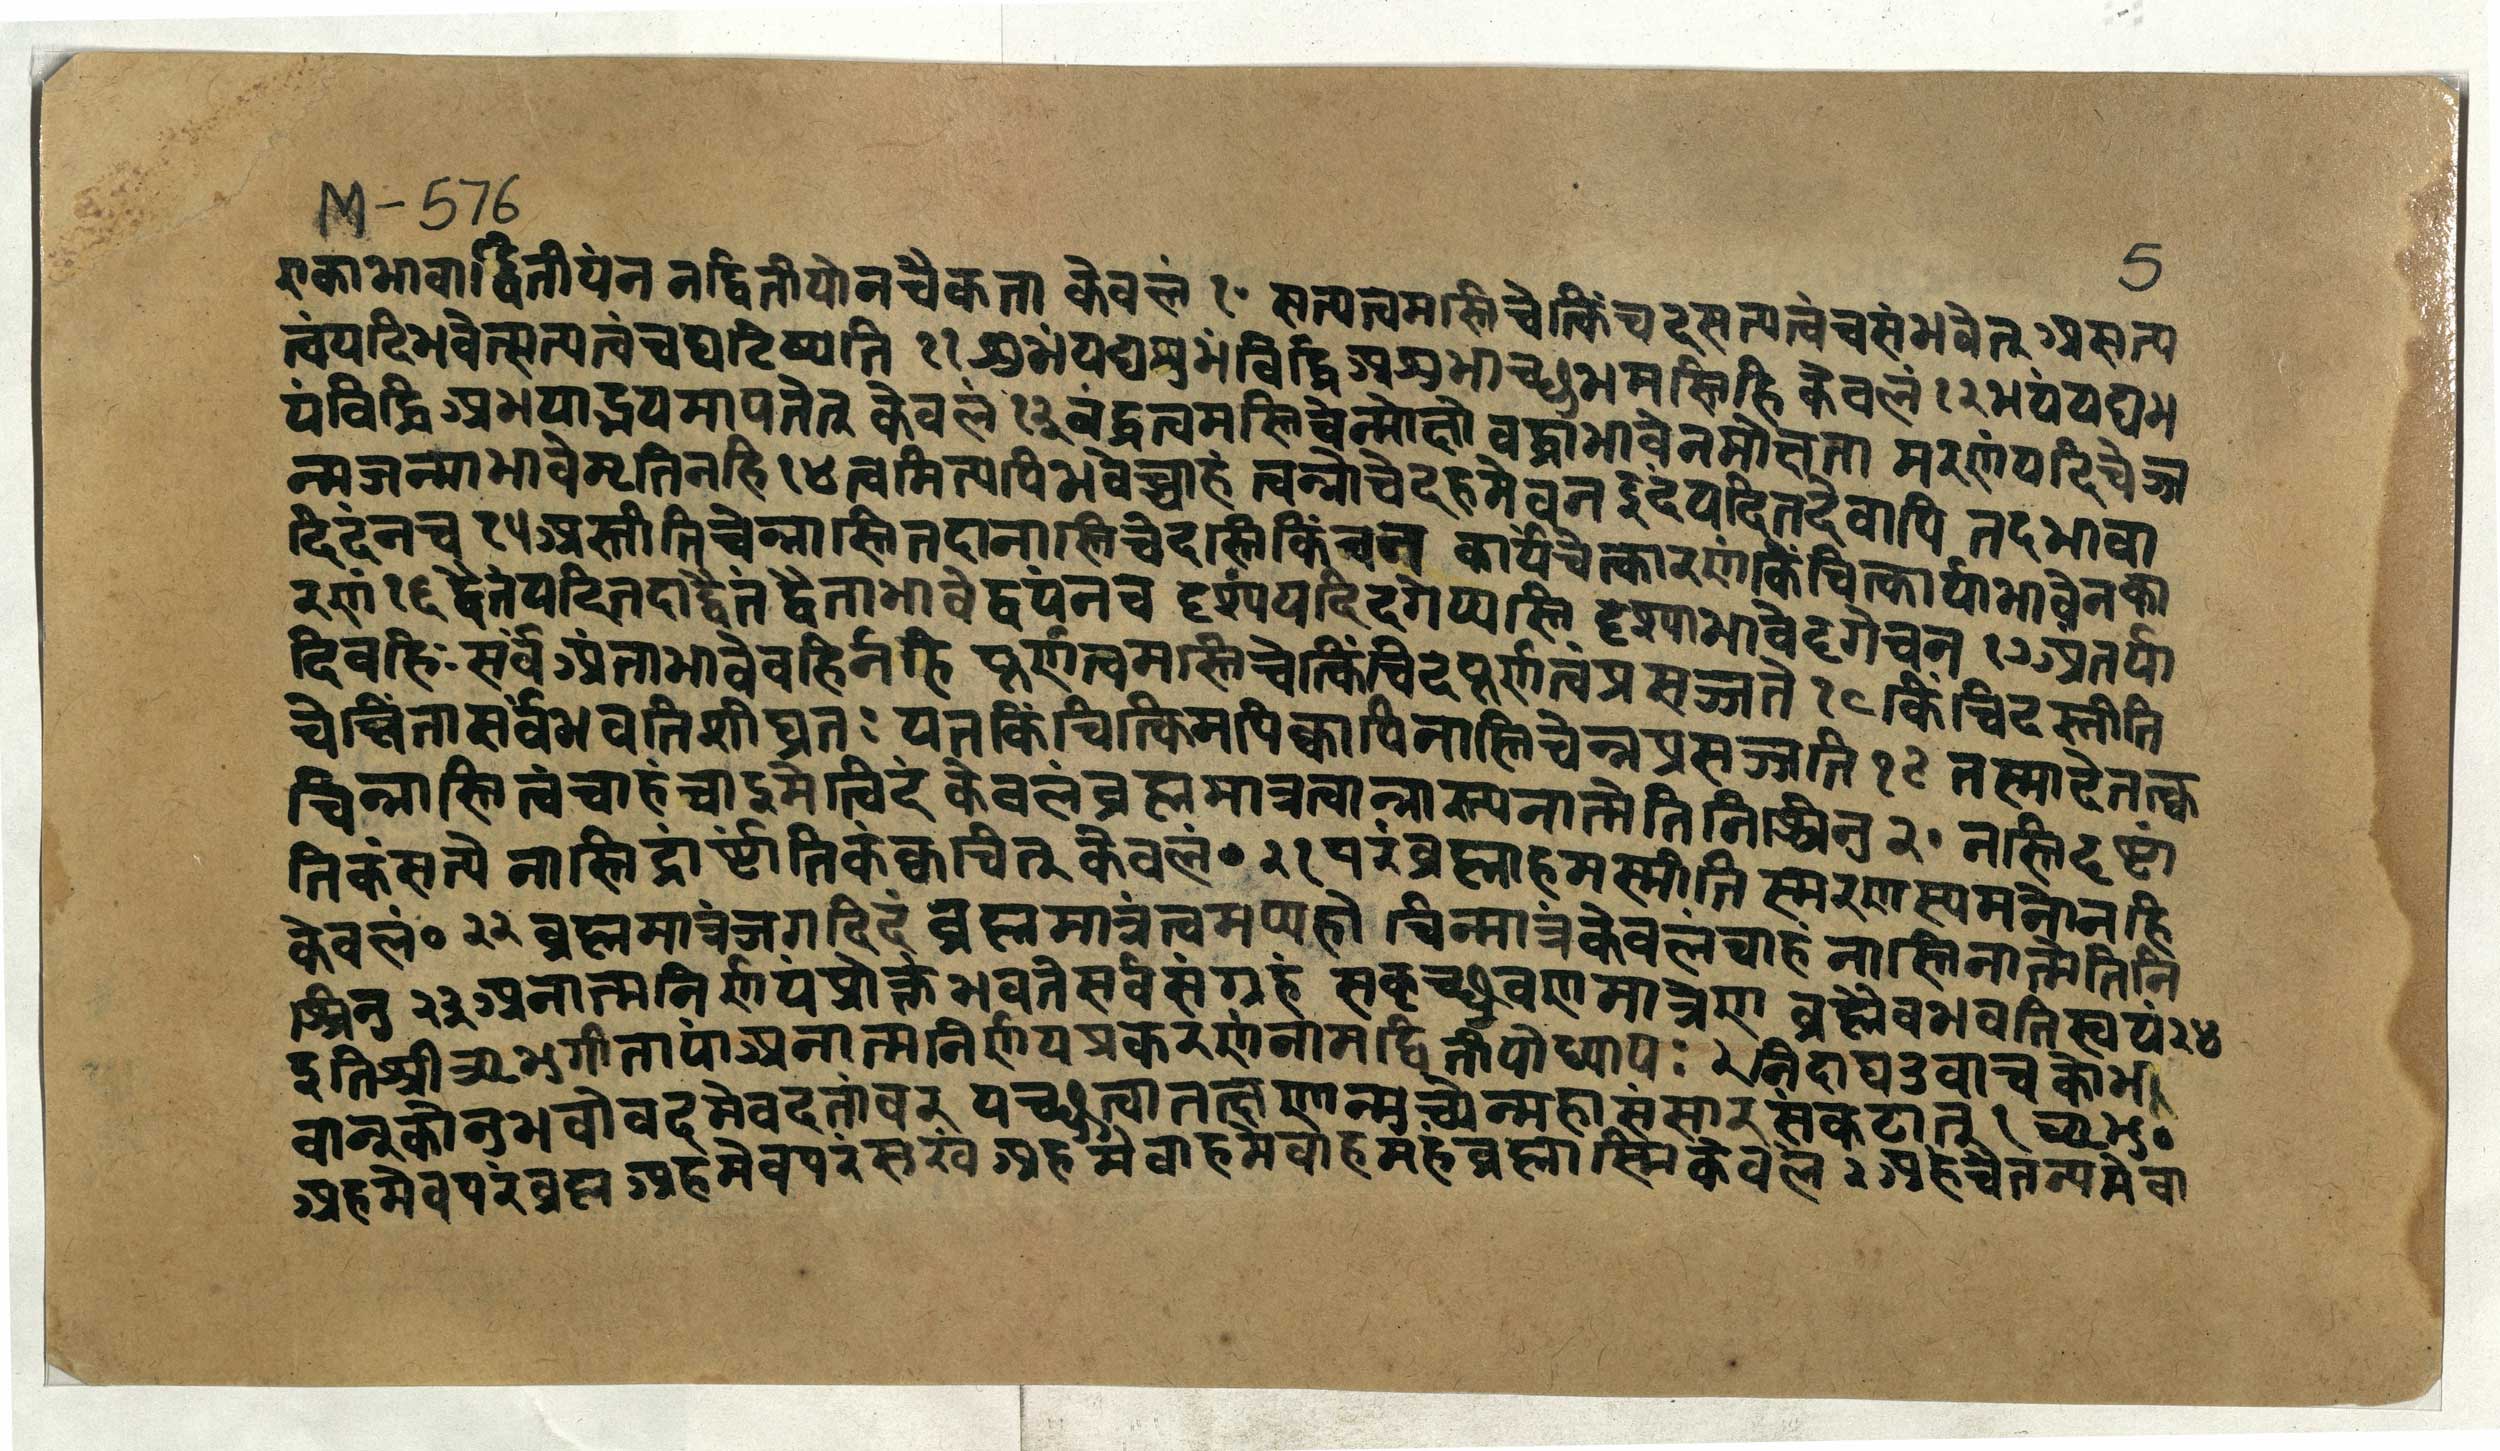 M-576
5
एकाभावाद्वितीयंन नद्वितीयोनचैकता केवलं १० सत्यत्वमस्तिचेत्किंचदसत्यत्वंचसंभवेत् असत्य
त्वंयदिभवेत्सत्यत्वंचघटिष्यति ११ शुभंयद्यशुभंविद्धिअशुभाच्छुभमस्तिहि केवलं १२ भयंयद्यभ
यंविद्धिअभयाद्भयमापतेत् केवलं १३ बंद्धत्वमस्तिचेन्मोक्षो बद्धाभावेनमोक्षता मरणंयदिचेज्ज
न्मजन्माभावेमृतिनहि १४ त्वमित्यपिभवेच्चाहं त्वन्नोचेदहमेवन इदंयदितदेवापि तदभावा
दिदंनच १५ अस्तीतिचेन्नास्तितदानास्तिचेदस्तिकिंचन कार्यंचेत्कारणंकिंचित्कार्याभावेनका
रणं १६ द्वैतंयदितदाद्वैतं द्वैताभावेद्वयंनच दृश्यंयदिदृगप्यस्ति दृश्याभावेदृगेवन १७ अंतर्या
दिबहिः सर्वंअंताभावेबहिर्नहि पूर्णत्वमस्तिचेत्किंचिदपूर्णत्वंप्रसज्जते १८ किंचिदस्तीति
चेच्चिंतासर्वंभवतिशीघ्रतः यतकिंचित्किमपिक्वापिनास्तिचेन्नप्रसज्जति १९ तस्मादेतत्क्व
चिन्नास्तित्वंचाहंचाइमेत्विदं केवलंब्रह्ममात्रत्वान्नास्त्यनात्मेतिनिश्चिनु २० नस्तिदृष्टां
तिकंसत्ये नास्तिद्रार्ष्टांतिकंक्वचित् केवलं० २१ परंब्रह्माहमस्मीति स्मरणस्यमनोनहि
केवलं० २२ ब्रह्ममात्रंजगदिदं ब्रह्ममात्रंत्वमप्यहो चिन्मात्रंकेवलंचाहं नास्तिनात्मेतिनि
श्चिनु २३ अनात्मनिर्णयंप्रोक्तंभवतेसर्वसंग्रहं सकृच्छ्रवणमात्रेण ब्रह्मैवभवतिस्वयं २४
इतिश्रीऋभुगीतायांअनात्मनिर्णयप्रकरणंनामद्वितीयोध्यायः २ निदाघउवाच कोभ
वान्कोनुभवोवदमेवदतांवर यच्छ्रुत्वातत्क्षणान्मुच्येन्महासंसारसंकटात् १ ऋभु०
अहमेवपरंब्रह्म अहमेवपरंसुखं अहमेवाहमेवाहमहंब्रह्मास्मिकेवलं २ अहंचैतन्यमेवा